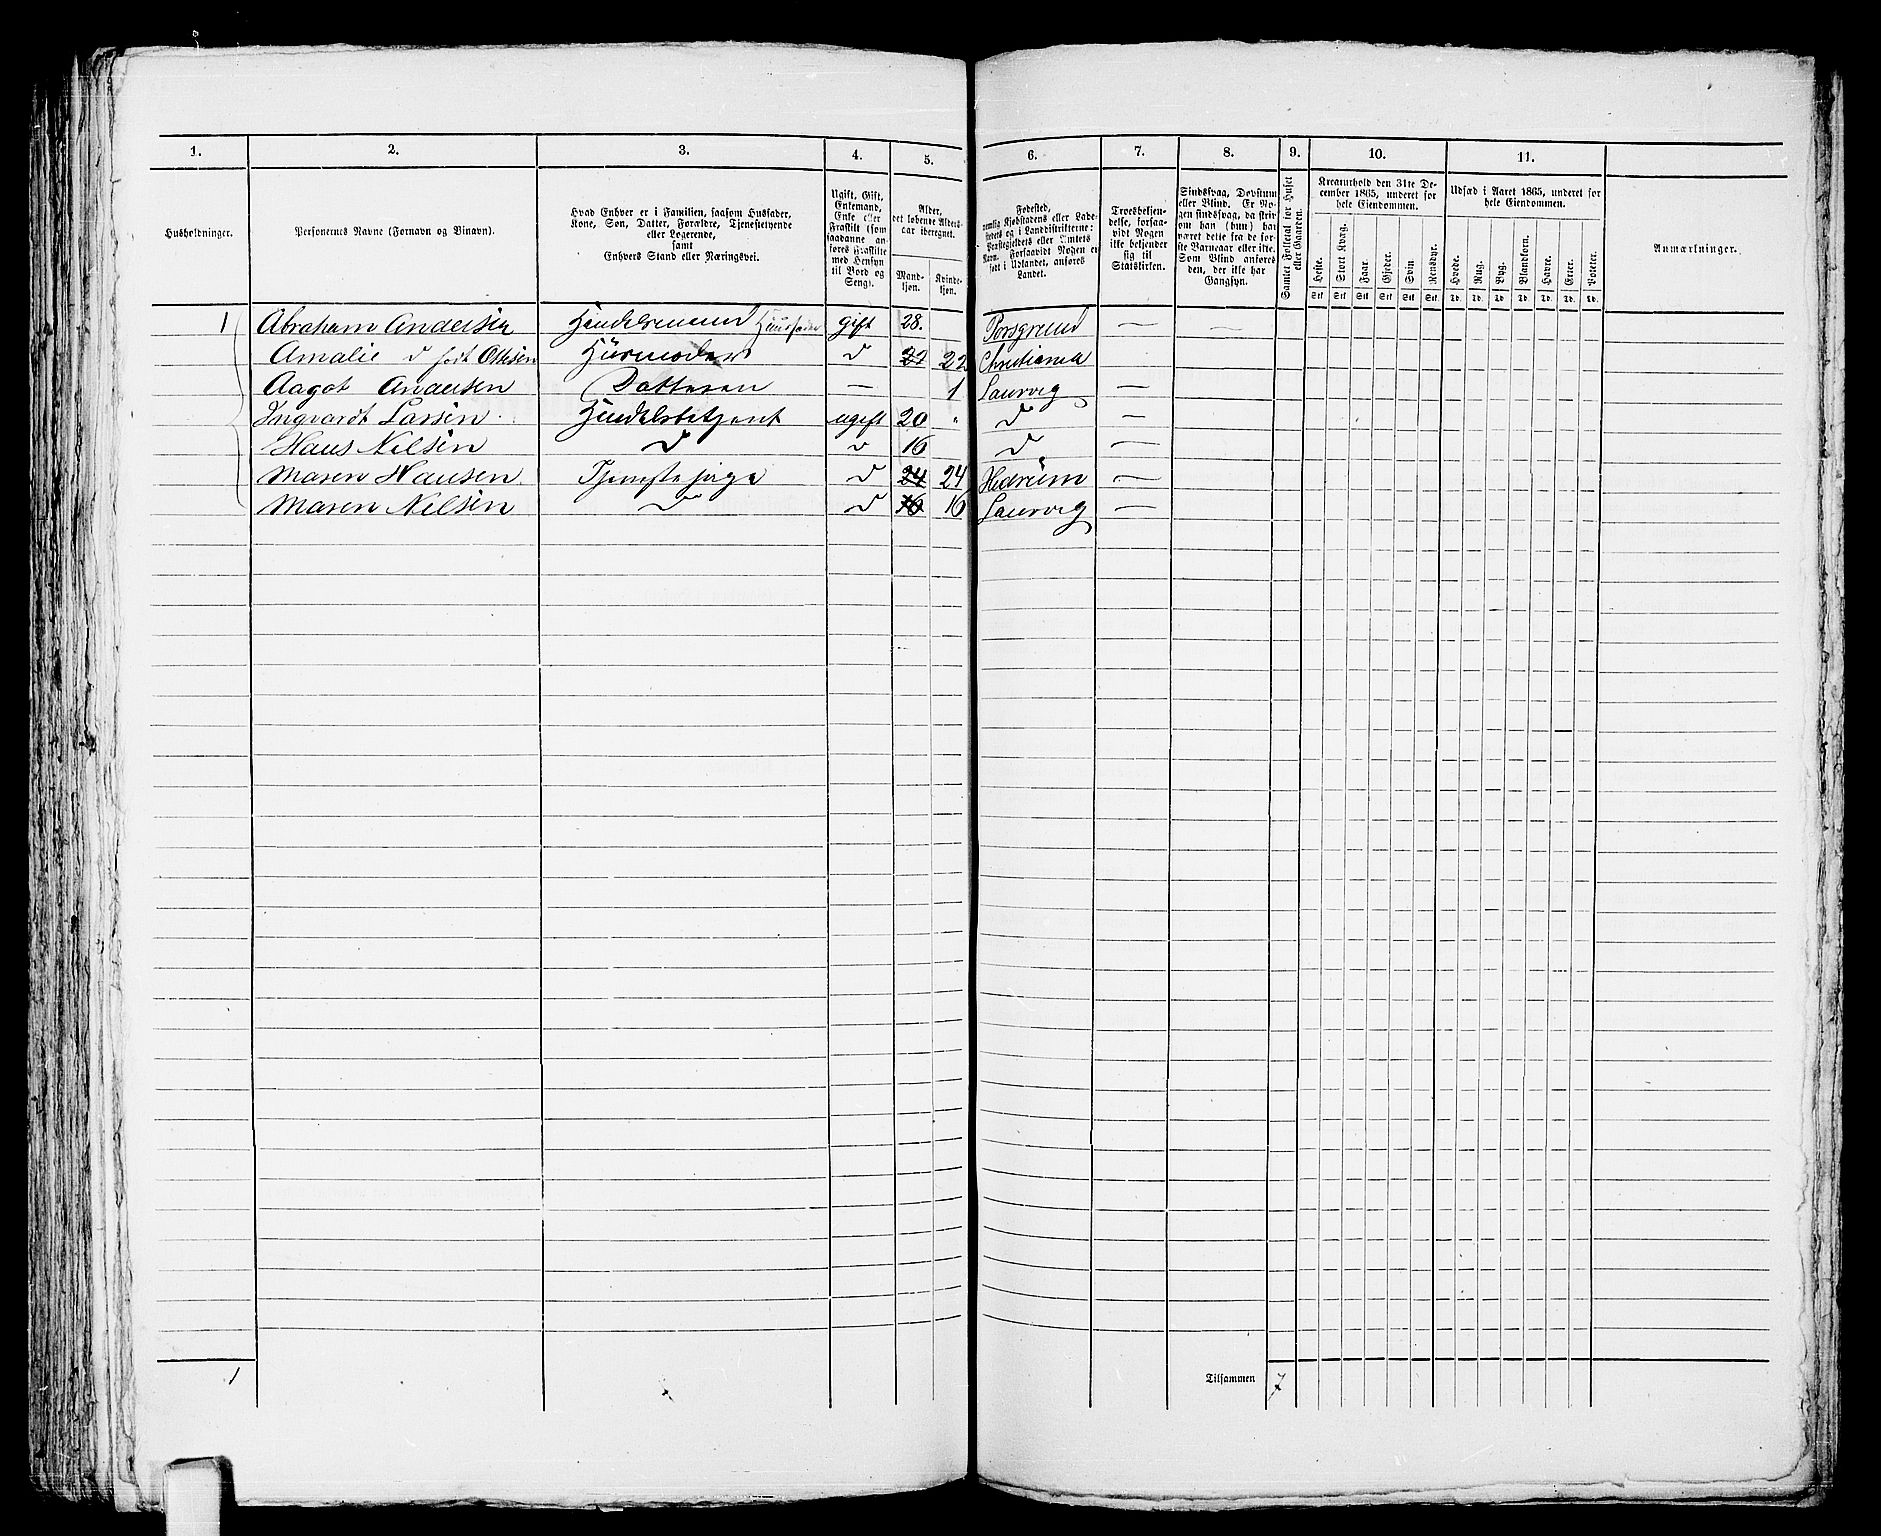 1. 2. 3. 4. 5. 6. 7. 8. 9. 10. 11.
Husholdninger.
Personernes Navne (Fornavn og Binavn).
Hvad Enhver er i Familien, saasom Husfader,
Kone, Søn, Datter, Forældre, Tjenestetyende
eller Logerende,
samt
Enhvers Stand eller Næringsvei.
Ugift, Gift,
Enkemand,
Enke eller
Fraskilt (som
saadanne an-
føres Fraskilte
med Hensyn
til Bord og
Seng).
Alder,
det løbende Alders-
aar iberegnet.
Mand-
kjøn.
Kvinde-
kjøn.
Fødested,
nemlig Kjøbstadens eller Lade-
stedets og i Landdistrikterne:
Præstegjeldets eller Amtets
Navn. Forsaavidt Nogen er
født i Udlandet, anføres
Landet.
Troesbekjen-
delse, forsaa-
vidt Nogen
ikke bekjender
sig til
Statskirken.
Sindssvag, Døvstum
eller Blind. Er No-
gen sindssvag, da skriv
om han (hun) har
været dette fra de før-
ste Barneaar eller ikke.
Som Blind anføres
den, der ikke har
Gangsyn.
Samlet Folketal for Huset
eller Gaarden.
Kreaturhold den 31te De-
cember 1865, underet for
hele Eiendommen.
Heste. Stort Kvæg. Faar. Gjeder. Svin. Rensdyr.
Stk Stk Stk Stk Stk Stk
Udsæd i Aaret 1865, underet for
hele Eiendommen.
Hvede. Rug. Byg. Blandkorn. Havre. Erter. Poteter.
Td. Td. Td. Td. Td. Td. Td.
Anmærkninger.
1 Abraham Andersen Handelsmand Huusfader Gift 28. Porsgrund — —
Amalie d født Ottesen Huusmoder d 22 22 Christiania
Aagot Andersen Datteren — 1 Laurvig —
Ingvardt Larsen Handelsbetjent ugift 20 " d —
Hans Nilsen d d 16 d —
Maren Hansen Tjenestepige d 24 24 Hedrum —
Maren Nilsen d d 16 16 Laurvig —
1
Tilsammen 7